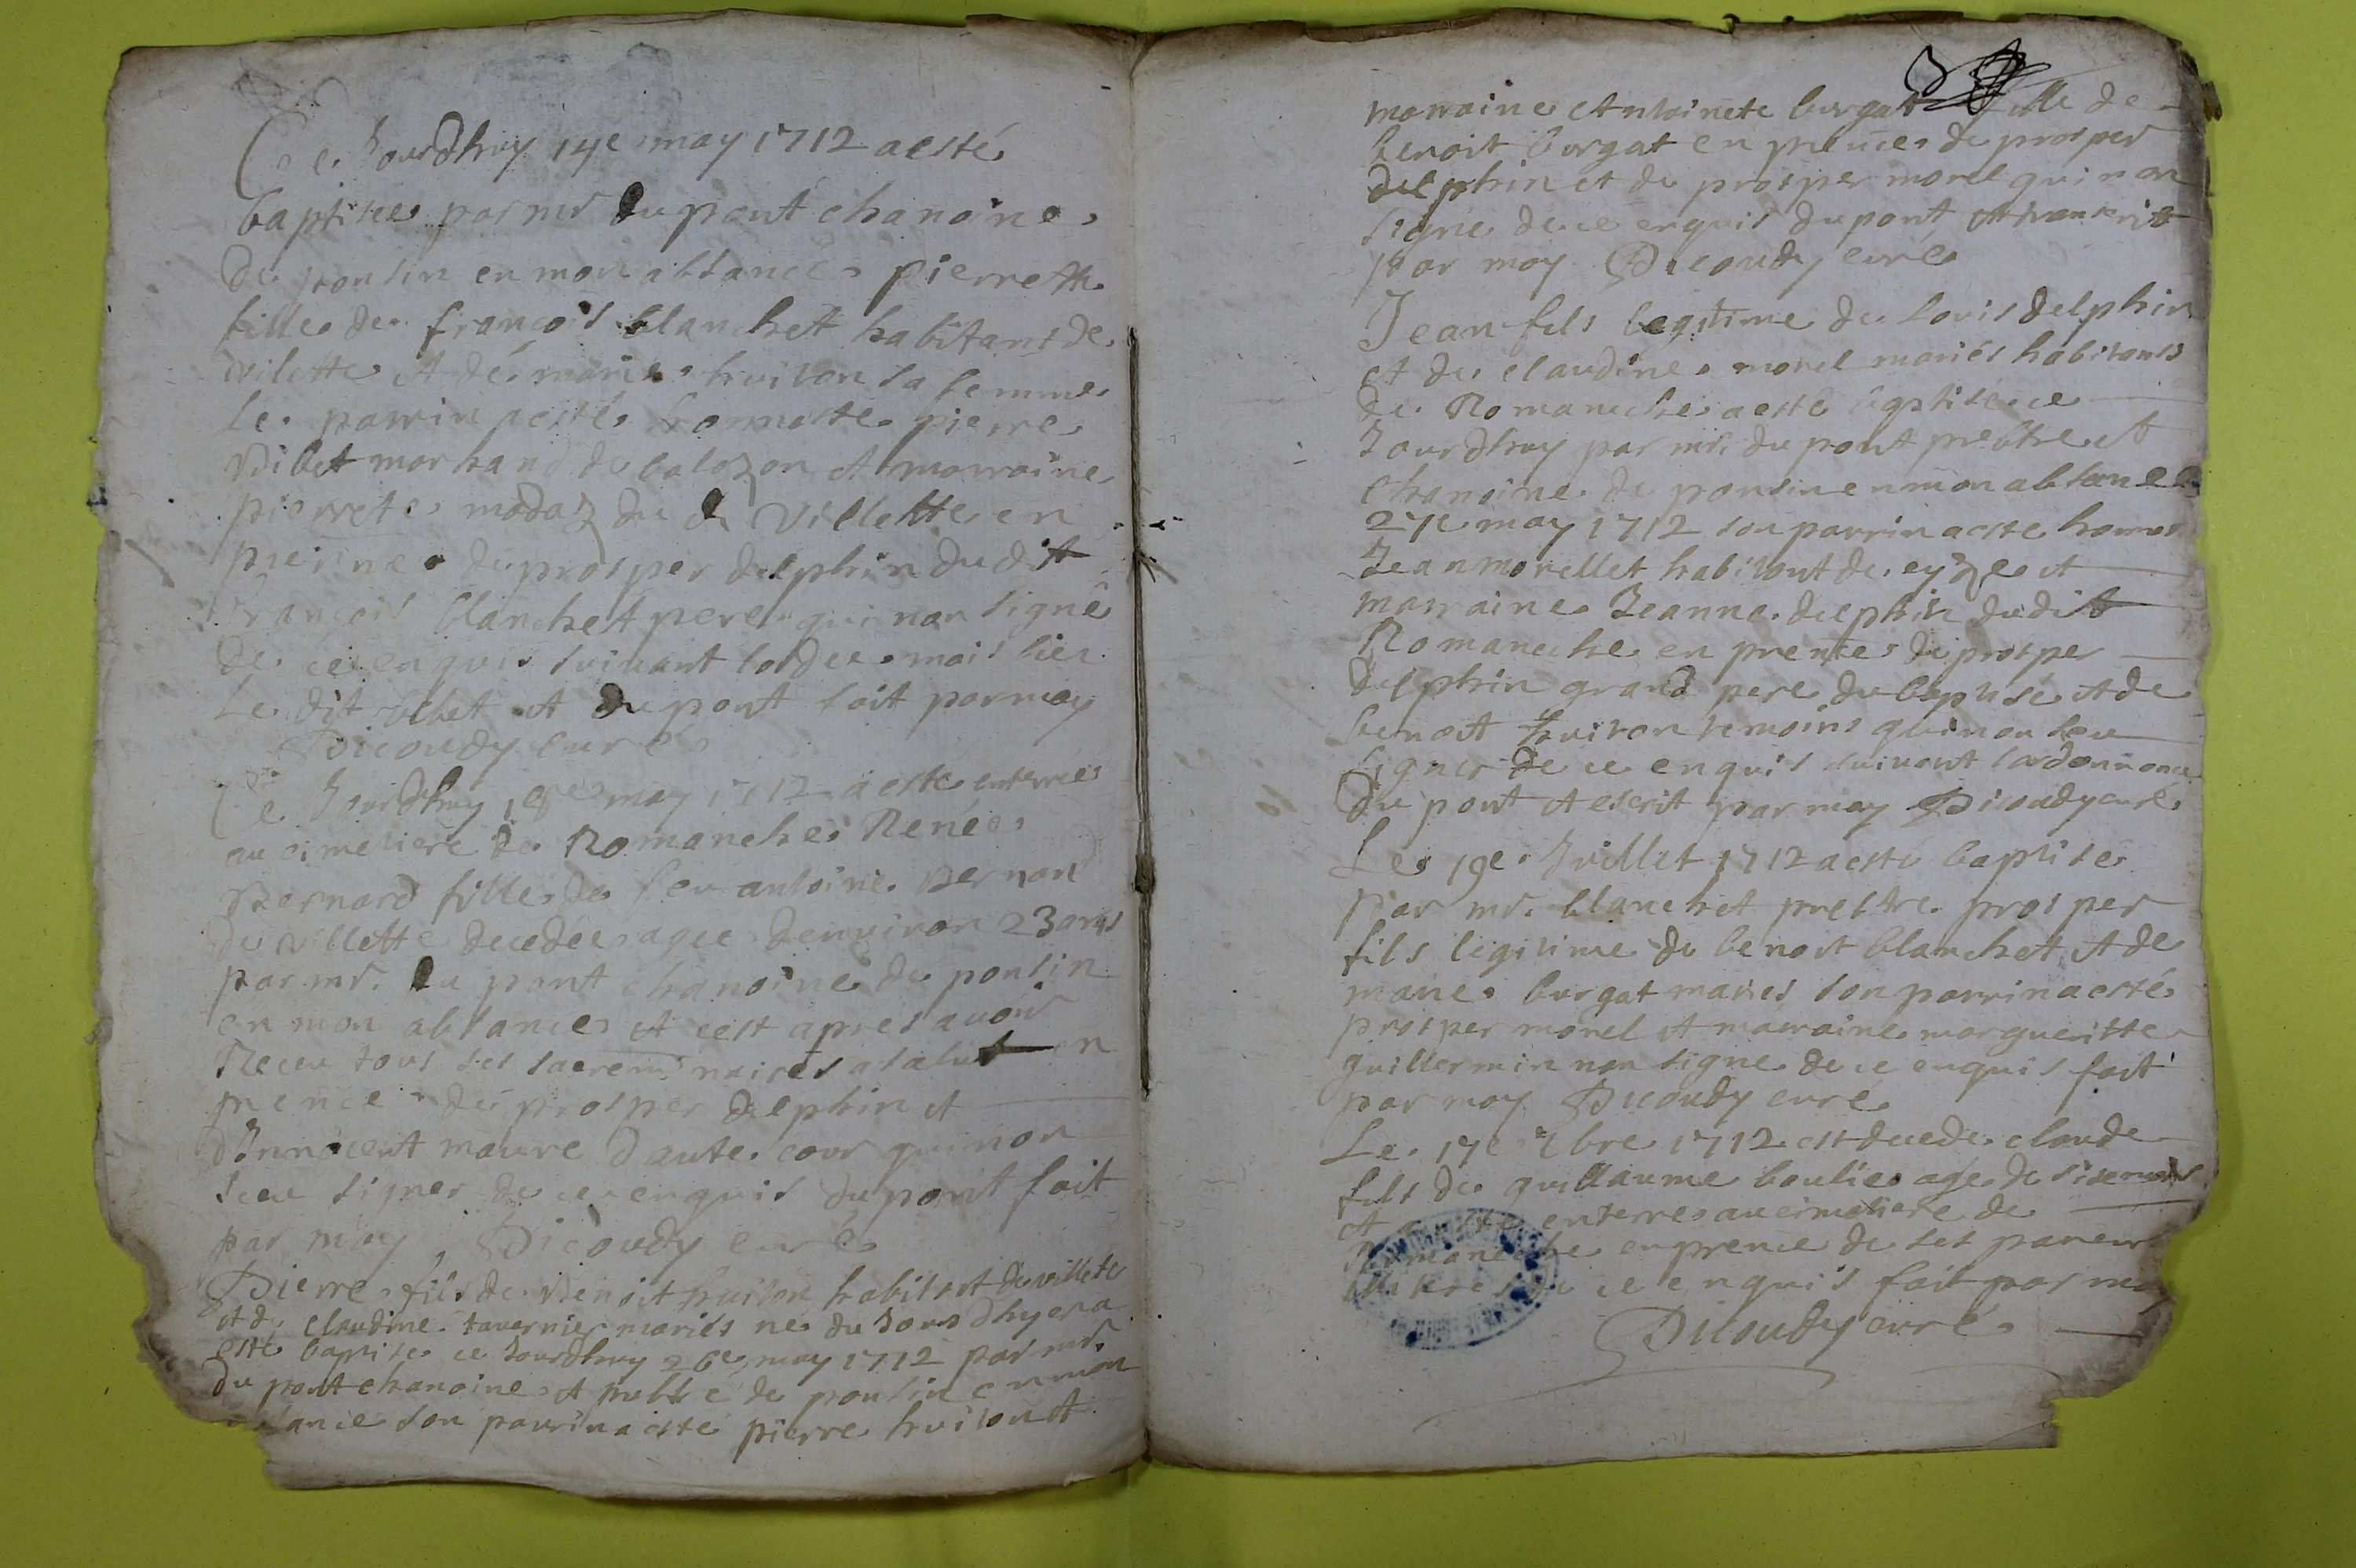 Ce Jourdhuy 14e may 1712 a esté
baptisée par mr du pont chanoine
de ponsin en mon absance pierrette
fille de françois blanchet habitant de
vilette et de marie huiton sa femme
le parrin a esté honneste pierre
vibet marhand de balozon et marraine
pierrete madaz du de villette en
prence de prosper delphin du dit
françois blanchet pere qui non signé
de ce enquis suivant lordce mais bien
le dit vibet et du pont fait par moy
Dicoudy curé
Ce Jourdhuy 18e may 1712 a esté enterrée
au cimetiere de Romaneche Renée
Bernard fille de feu antoine Bernard
de villette decedée agee denviron 23 ans
par mr. du pont chanoine de ponsin
en mon absance et cest apres avoir
Receu tous ses sacrem naires a salut en
prence de prosper delphin et
dinnocent maure daute cour qui non
sceu signer de ce enquis du pont fait
par moy Dicoudy curé
Pierre fils de Benoit huiton habitant de villete
et de claudine tavernier mariés né du Jour dhyer a
esté baptise ce Jourdhuy 26e may 1712 par mr.
du pont chanoine et prebtre de ponsin en mon
absance son parrin a esté pierre huiton et
marraine Antoinete burgat fille de
benoit burgat en prence de prosper
delphin et de prosper morel qui non
signe de ce enquis du pont et transcritt
par moy Dicoudy curé
Jean fils legitime de louis delphin
et de claudine morel mariés habitants
de Romaneche a esté baptise ce
Jourdhuy par mr. du pont prebtre et
chanoine de ponsin en mon absance
27e may 1712 son parrin a este hones
Jean morellet habitant de et
marraine Jeanne delphin dudit
Romaneche en prence de prosper
delphin grand pere du baptisé et de
benoit huiton temoins qui non sceu
signer de ce enquis suivant lordonnance
du pont et escrit par moy Dicoudy curé
Le 19e Juillet 1712 a este baptise
par mr. blanchet prebtre prosper
fils legitime de benoit blanchet et de
marie burgat mariés son parrin a esté
prosper morel et marraine margueritte
guillermin non signe de ce enquis fait
par moy Dicoudy curé
Le 17e bre 1712 est decede claude
fils de guillaume boulie age de sise mois
et esté enterre au cimetiere de
Romaneche en prence de ses parens
de ce enquis fait par moy
Dicoudy curé